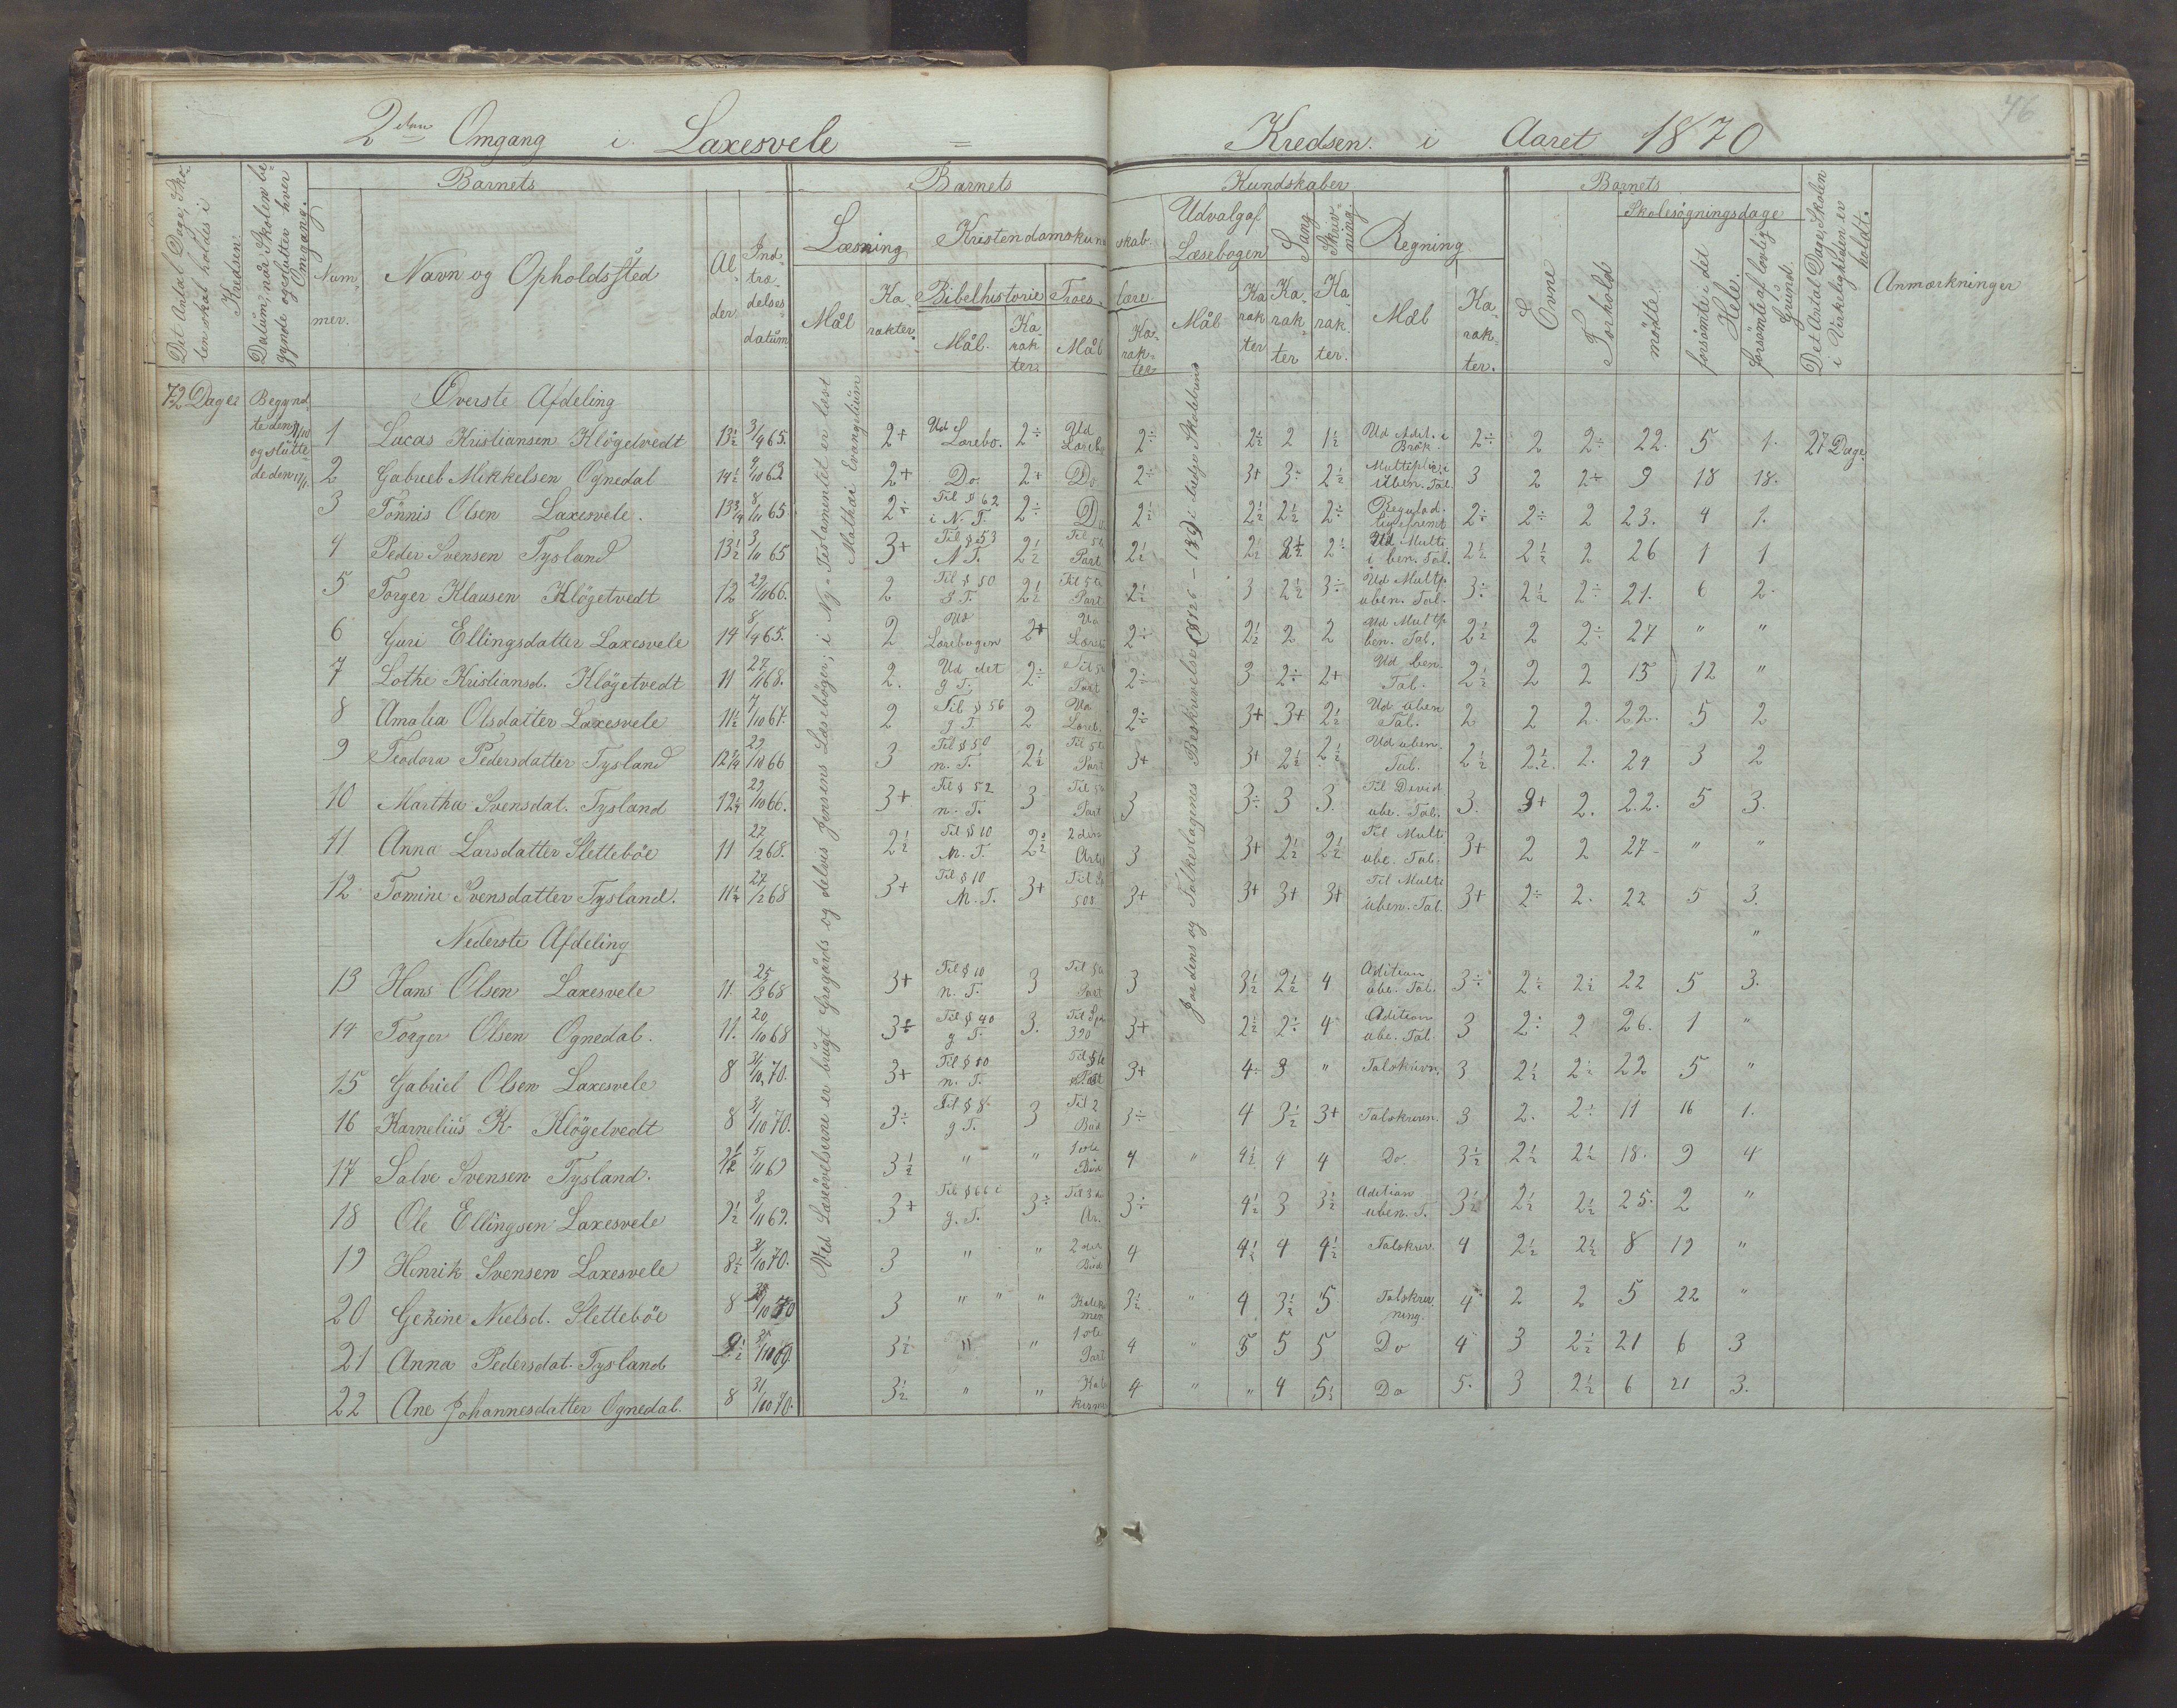 46
2den Omgang i Laxesvele = Kredsen i Aaret 1870
Det Antal Dage, Skolen skal holdes i Kredsen.
Datum, når Skolen begynde og slutter hver Omgang.
Barnets
Nummer.
Navn og Opholdssted
Alder.
Indtrædelsesdatum
Barnets Kundskaber
Læsning
Mål
Karakter.
Kristendomskundskab.
Bibelhistorie
Mål.
Karakter.
Troeslære.
Mål
Karakter
Udvalg af Læsebogen
Mål
Karakter
Sang
Karakter
Skrivning.
Karakter.
Regning
Mål
Karakter.
Barnets
Evne
Forhold
Skolesøgningsdage
mødte.
forsømte i det Hele.
forsømte af lovlig Grund.
Det Antal Dage, Skolen i Virkeligheden er holdt.
Anmærkninger
72 Dage Begyndte den og sluttede den
Øverste Afdeling
1 Lucas Kristiansen Klögetvedt 13½ 3/9 65. 2+ Ud Lærebo. 2÷ Ud Lærebo 2÷ 2½ 2 1½ Ud Adit. i Brök 2÷ 2 2÷ 22. 5 1. 27 Dage.
2 Gabriel Mikkelsen Ognedal 14½ 4/10 63 2+ Do. 2+ Do 2÷ 3+ 3÷ 2½ Multiplic. i uben. Tal. 3 2 2+ 9 18 18.
3 Tönnis Olsen Laxesvele. 13¾ 8/11 65 2÷ Til § 62 i N. T. 2÷ Do 2½ 2½ 2½ 2÷ Regulad. 2÷ 2÷ 2 23. 4 1.
4 Peder Svensen Tysland 13½ 3/11 65 3+ Til § 53 N T. 2½ Til 5te Part. 2½ 2½ 2½ 2÷ Ud Multi i ben. Tal. 2½ 2½ 2 26 1 1
5 Torger Klausen Klögetvedt 12 29/11 66. 2 Til § 50 g T. 2½ Til 5te Part 2½ 3 2½ 3÷ Ud Multp. uben. Tal. 3÷ 2½ 2÷ 21. 6 2.
6 Guri Ellingsdatter Laxesvele 14 8/9 65. 2 Ud Lærebogen 2+ Ud Læreb. 2÷ 2½ 2 2 Ud Multp ben. Tal. 2½ 2 2÷ 27 " "
7 Lothe Kristiansd. Klögetvedt 11 27/1 68. 2. Ud det g T. 2÷ Til 5te Part 2÷ 3 2÷ 2+ Ud ben. Tal. 2½ 2 2 15 12 "
8 Amalia Olsdatter Laxesvele 11½ 4/10 67. 2 Til § 56 g T. 2 Ud Læreb. 2÷ 3+ 3+ 2½ Ud uben Tal. 2 2 2. 22. 5 2
9 Teodora Pedersdatter Tysland 12¼ 29/10 66 3 Til § 50 n. T. 2½ Til 5te Part 3+ 3+ 2½ 2½ Ud uben. Tal. 2½ 2½ 2. 24 3 2
10 Martha Svensdat. Tysland 12¼ 29/10 66. 3+ Til § 52 n. T. 3 Til 5te Part 3 3÷ 3 3. Til Divid. ube. Tal. 3. 3+ 2. 22. 5 3.
11 Anna Larsdatter Slettebøe 11 27/2 68. 2½ Til § 10 N. T. 2½ 2den Art. 3 3+ 2½ 2½ Til Multi ube. Tal. 3+ 2 2 27 " "
12 Tomine Svensdatter Tysland. 11¼ 27/2 68 3+ Til § 10 N. T. 3+ Til Sp 500 3+ 3+ 3+ 3+ Til Multi uben. Tal. 3+ 2÷ 2. 22 5 3.
Nederste Afdeling "
13 Hans Olsen Laxesvele 11. 25/3 68 3+ Til § 10 n. T. 3 Til 5te Part 3 3½ 2½ 4 Adition ube. Tal. 3÷ 2÷ 2½ 22 5 3.
14 Torger Olsen Ognedal. 11. 20/10 68 3+ Til § 40 g T. 3. Til Sp. 390 3+ 2½ 2÷ 4 Adition ube. Tal 3 2÷ 2 26. 1 "
15 Gabriel Olsen Laxesvele 8 31/10 70. 3+ Til § 10 n. T. Til 5te Part 3+ 4÷ 3 " Talskrivn. 3 2½ 2½ 22 5 "
16 Karnelius K. Klögetvedt 8 31/10 70. 3÷ Til § 8 g T. 3 Til 2 Bud 3÷ 4 3½ 3+ Talskriven. 3 2. 2÷ 11 16 1.
17 Salve Svensen Tysland. 9½ 5/11 69 3½ " " 1ste Bud 4 " 4½ 4 4 Do. 3½ 2½ 2½ 18. 9 4
18 Ole Ellingsen Laxesvele 9½ 8/11 69. 3+ Til § 66 g. T. 3÷ Til 3die Ar. 3÷ 4½ 3 3½ Adition uben. T. 3½ 2½ 2½ 25. 2 "
19 Henrik Svensen Laxesvele 8½ 31/10 70. 3 " " 2det Bud 4 4½ 4 4½ Talskriv. 4 2½ 2½ 8 19 "
20 Gezine Nielsd. Slettebøe 8 /10 70 3 " " " 3½ " 4 3½ 5 Talskrivning. 4 2 2 5 22 "
21 Anna Pedersdat. Tysland 9½ /10 69. 3½ " " 1ste Part 4 " 5 5 5 Do 4 3 2½ 21 6 3
22 Ane Johannesdatter Ognedal. 8 31/10 70. 3½ " " 4 " " 4 5½ Do 5. 3 2½ 6 21 3.
Ved Læseøvelserne er brugt Grogårds og delvis Jensens Læsebøger; i Ny-Testamentet er læst Mathæi Evangelium
Jordens og Folkeslagenes Beskrivelse i tredje Skoletrin